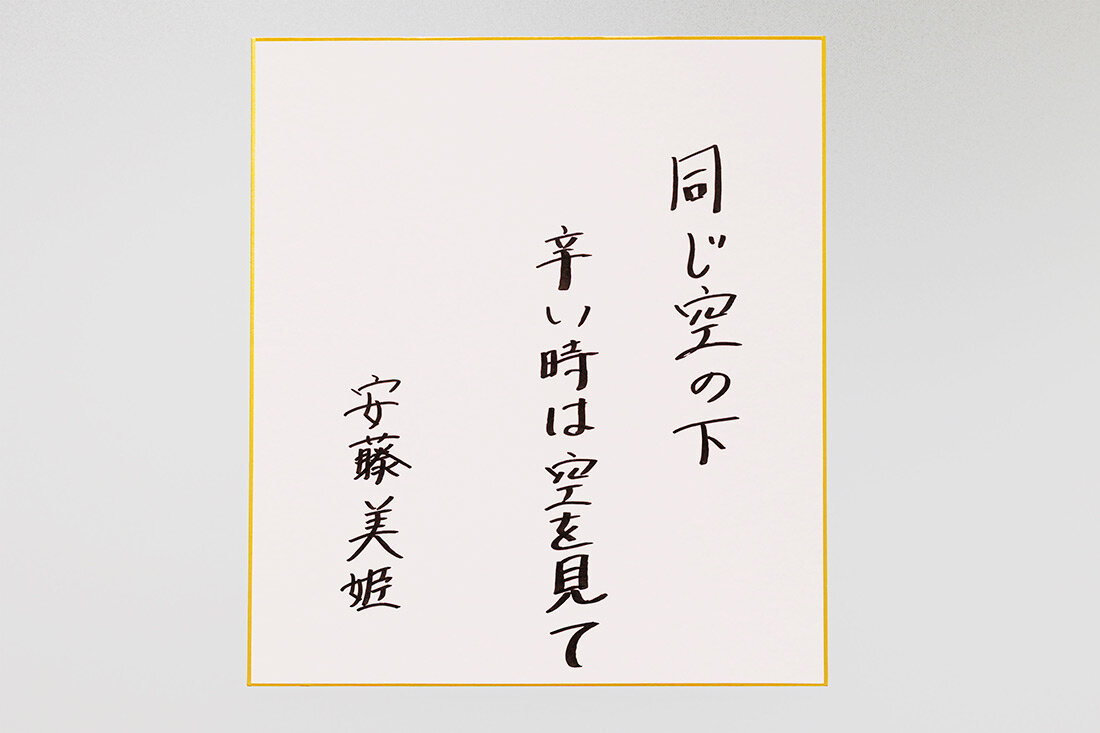 同じ空の下
辛い時は空を見て
安藤美姫